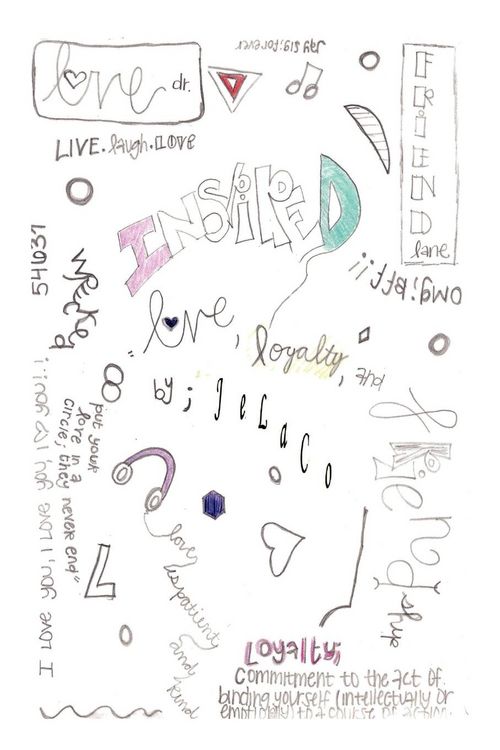 Love dr.
LIVE. laugh. LOVE
Jay sig; forever
FRIEND
lane
INSPIRED
omg; bff;;
"Love, loyalty, and
friendship
by; JeLaCo
541037
wrecked
put your
love in a
circle; they never end"
I LOVE you, I LOVE you, I LP you;;
love,
is patienty
andy
kind
LOYALTY;
COMMITMENT TO the ACT OF.
binding yourself (intellectually or
emotionally) to a course of action.